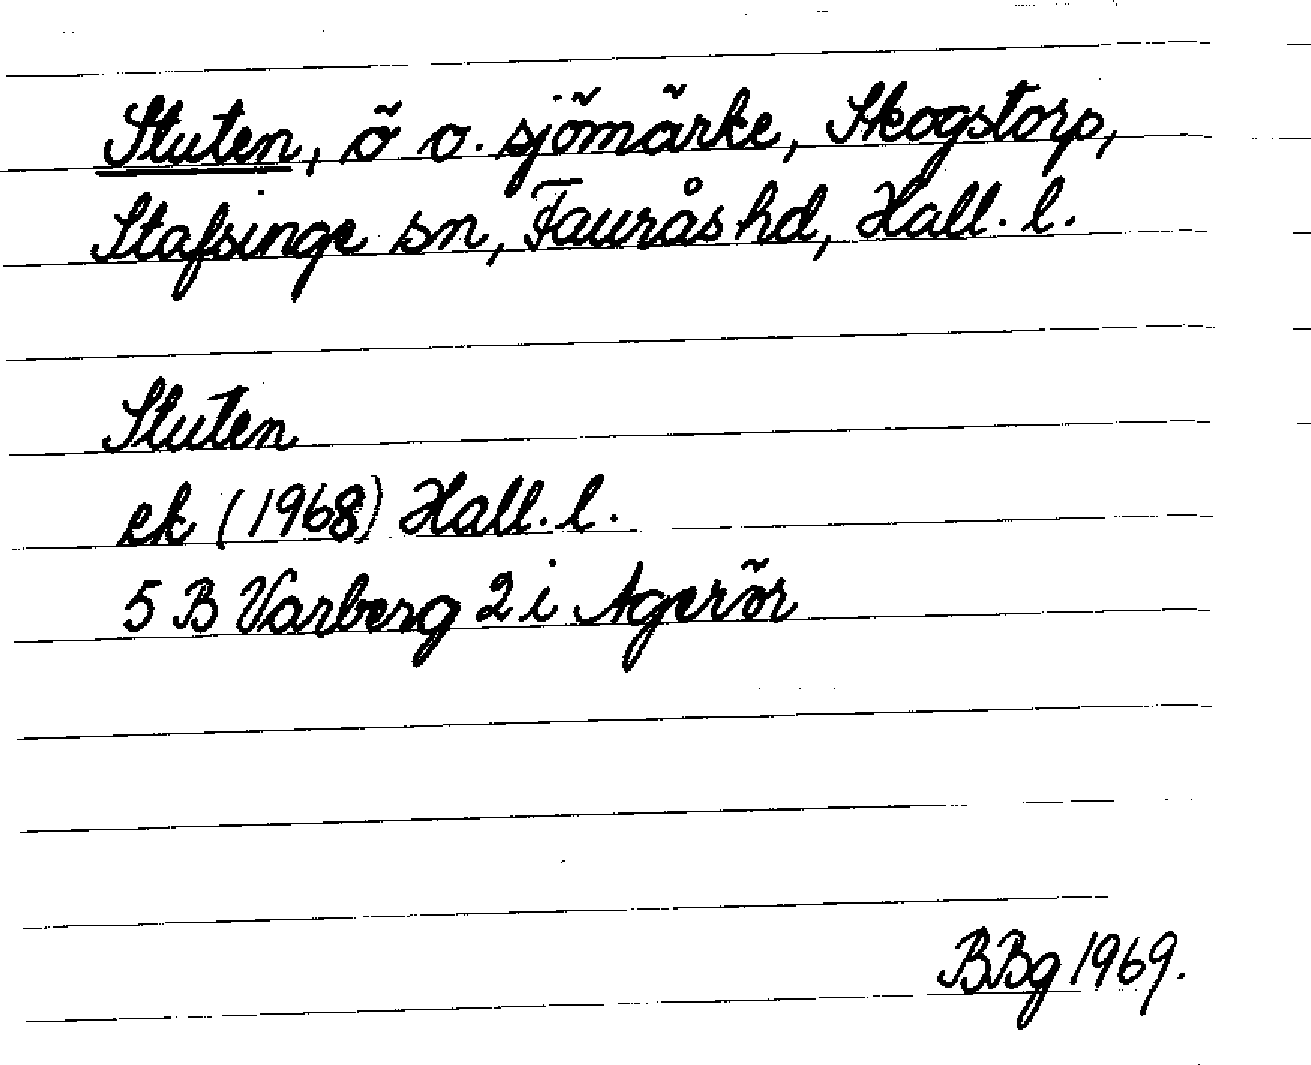 Stuten, ö o. sjömärke, Skogstorp,
Stafsinge sn, Faurås hd, Hall. l.
Stuten
ek (1968) Hall. l.
5 B Varberg 2 i Agerör
BBg 1969.